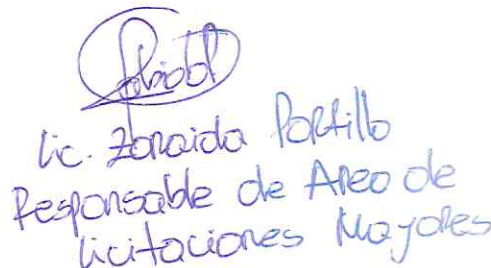 Lic. Zoraida Portillo
Responsable de Area de
Licitaciones Mayores